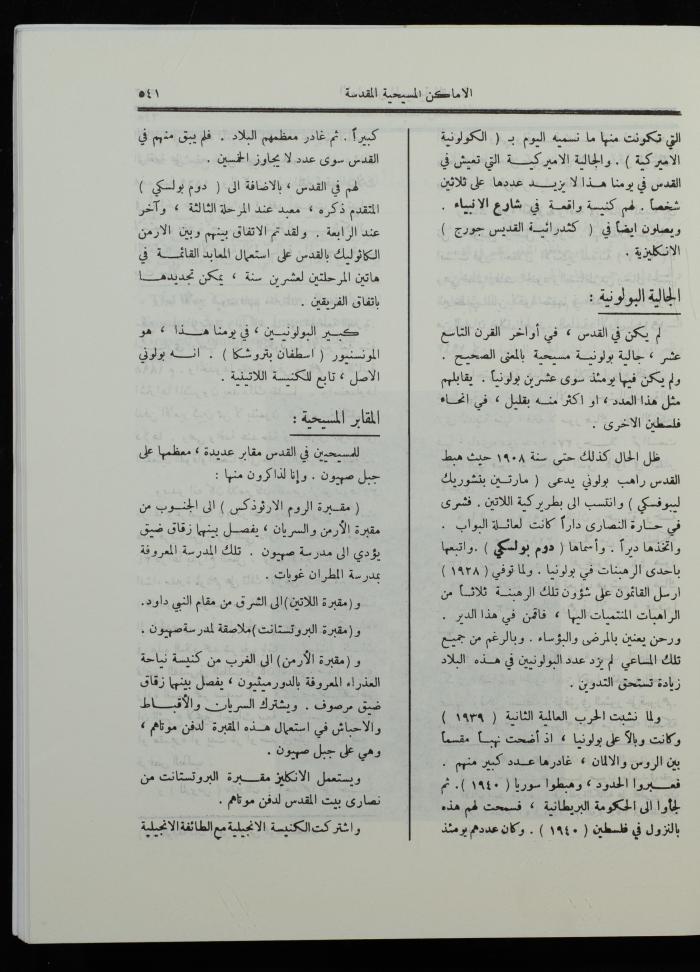 الاماكن المسيحية المقدسة
٥٤١
التي تكونت منها ما نسميه اليوم بـ ( الكولونية
الاميركية ) . والجالية الاميركية التي تعيش في
القدس في يومنا هذا لا يزيد عددها على ثلاثين
شخصاً . لهم كنيسة واقعة في شارع الانبياء .
ويصلون ايضاً في ( كتدرائية القديس جورج )
الانكليزية .
الجالية البولونية :
لم يكن في القدس ، في أواخر القرن التاسع
عشر ، جالية بولونية مسيحية بالمعنى الصحيح .
ولم يكن فيها يومئذ سوى عشرين بولونياً . يقابلهم
مثل هذا العدد ، او اكثر منه بقليل ، في انحاء
فلسطين الاخرى .
ظل الحال كذلك حتى سنة ١٩٠٨ حيث هبط
القدس راهب بولوني يدعى ( مارتين بفشوريك
ليبوفسكي ) وانتسب الى بطريركية اللاتين . فشرى
في حارة النصارى داراً كانت لعائلة البواب .
واتخذها ديراً . وأسماها ( دوم بولسكي ) . واتبعها
باحدى الرهبنات في بولونيا . ولما توفي ( ١٩٢٨ )
ارسل القائمون على شؤون تلك الرهبنة ثلاثاً من
الراهبات المنتميات اليها ، فاقمن في هذا الدير .
ورحن يعنين بالمرضى والبؤساء . وبالرغم من جميع
تلك المساعي لم يزد عدد البولونيين في هذه البلاد
زيادة تستحق التدوين .
ولما نشبت الحرب العالمية الثانية ( ١٩٣٩ )
وكانت وبالاً على بولونيا ، اذ أضحت نهباً مقسماً
بين الروس والالمان ، غادرها عدد كبير منهم .
فعبروا الحدود ، وهبطوا سوريا ( ١٩٤٠ ) . ثم
لجأوا الى الحكومة البريطانية ، فسمحت لهم هذه
بالنزول في فلسطين ( ١٩٤٠ ) . وكان عددهم يومئذ
كبيراً . ثم غادر معظمهم البلاد . فلم يبق منهم في
القدس سوى عدد لا يجاوز الخمسين .
لهم في القدس ، بالاضافة الى ( دوم بولسكي )
المتقدم ذكره ، معبد عند المرحلة الثالثة ، وآخر
عند الرابعة . ولقد تم الاتفاق بينهم وبين الارمن
الكاثوليك بالقدس على استعمال المعابد القائمة في
هاتين المرحلتين لعشرين سنة ، يمكن تجديدها
باتفاق الفريقين .
كبير البولونيين ، في يومنا هذا ، هو
المونسنيور ( اسطفان بتروشكا ) . انه بولوني
الاصل ، تابع للكنيسة اللاتينية .
المقابر المسيحية :
للمسيحيين في القدس مقابر عديدة ، معظمها على
جبل صهيون . وإنا لذاكرون منها :
( مقبرة الروم الارثوذكس ) الى الجنوب من
مقبرة الأرمن والسريان ، يفصل بينها زقاق ضيق
يؤدي الى مدرسة صهيون . تلك المدرسة المعروفة
بمدرسة المطران غوبات .
و ( مقبرة اللاتين ) الى الشرق من مقام النبي داود .
و ( مقبرة البروتستانت ) ملاصقة لمدرسة صهيون .
و ( مقبرة الأرمن ) الى الغرب من كنيسة نياحة
العذراء المعروفة بالدورميثيون ، يفصل بينها زقاق
ضيق مرصوف . ويشترك السريان والأقباط
والاحباش في استعمال هذه المقبرة لدفن موتاهم ،
وهي على جبل صهيون .
ويستعمل الانكليز مقبرة البروتستانت من
نصارى بيت المقدس لدفن موتاهم .
واشتركت الكنيسة الانجيلية مع الطائفة الانجيلية